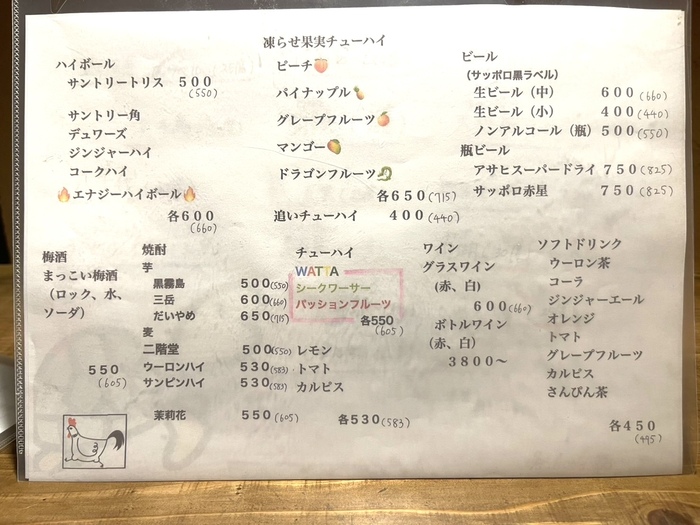 ハイボール
サントリートリス 500
(550)
サントリー角
デュワーズ
ジンジャーハイ
コークハイ
🔥エナジーハイボール🔥
各600
(660)
凍らせ果実チューハイ
ピーチ🍑
パイナップル🍍
グレープフルーツ🍊
マンゴー🥭
ドラゴンフルーツ🐉
各650(715)
追いチューハイ 400(440)
ビール
(サッポロ黒ラベル)
生ビール(中) 600(660)
生ビール(小) 400(440)
ノンアルコール(瓶) 500(550)
瓶ビール
アサヒスーパードライ 750(825)
サッポロ赤星 750(825)
梅酒
まっこい梅酒
(ロック、水、
ソーダ)
550
(605)
焼酎
芋
黒霧島 500(550)
三岳 600(660)
だいやめ 650(715)
麦
二階堂 500(550)
ウーロンハイ 530(583)
サンピンハイ 530(583)
茉莉花 550(605)
チューハイ
WATTA
シークワーサー
パッションフルーツ
各550
(605)
レモン
トマト
カルピス
各530(583)
ワイン
グラスワイン
(赤、白)
600(660)
ボトルワイン
(赤、白)
3800〜
ソフトドリンク
ウーロン茶
コーラ
ジンジャーエール
オレンジ
トマト
グレープフルーツ
カルピス
さんぴん茶
各450
(495)